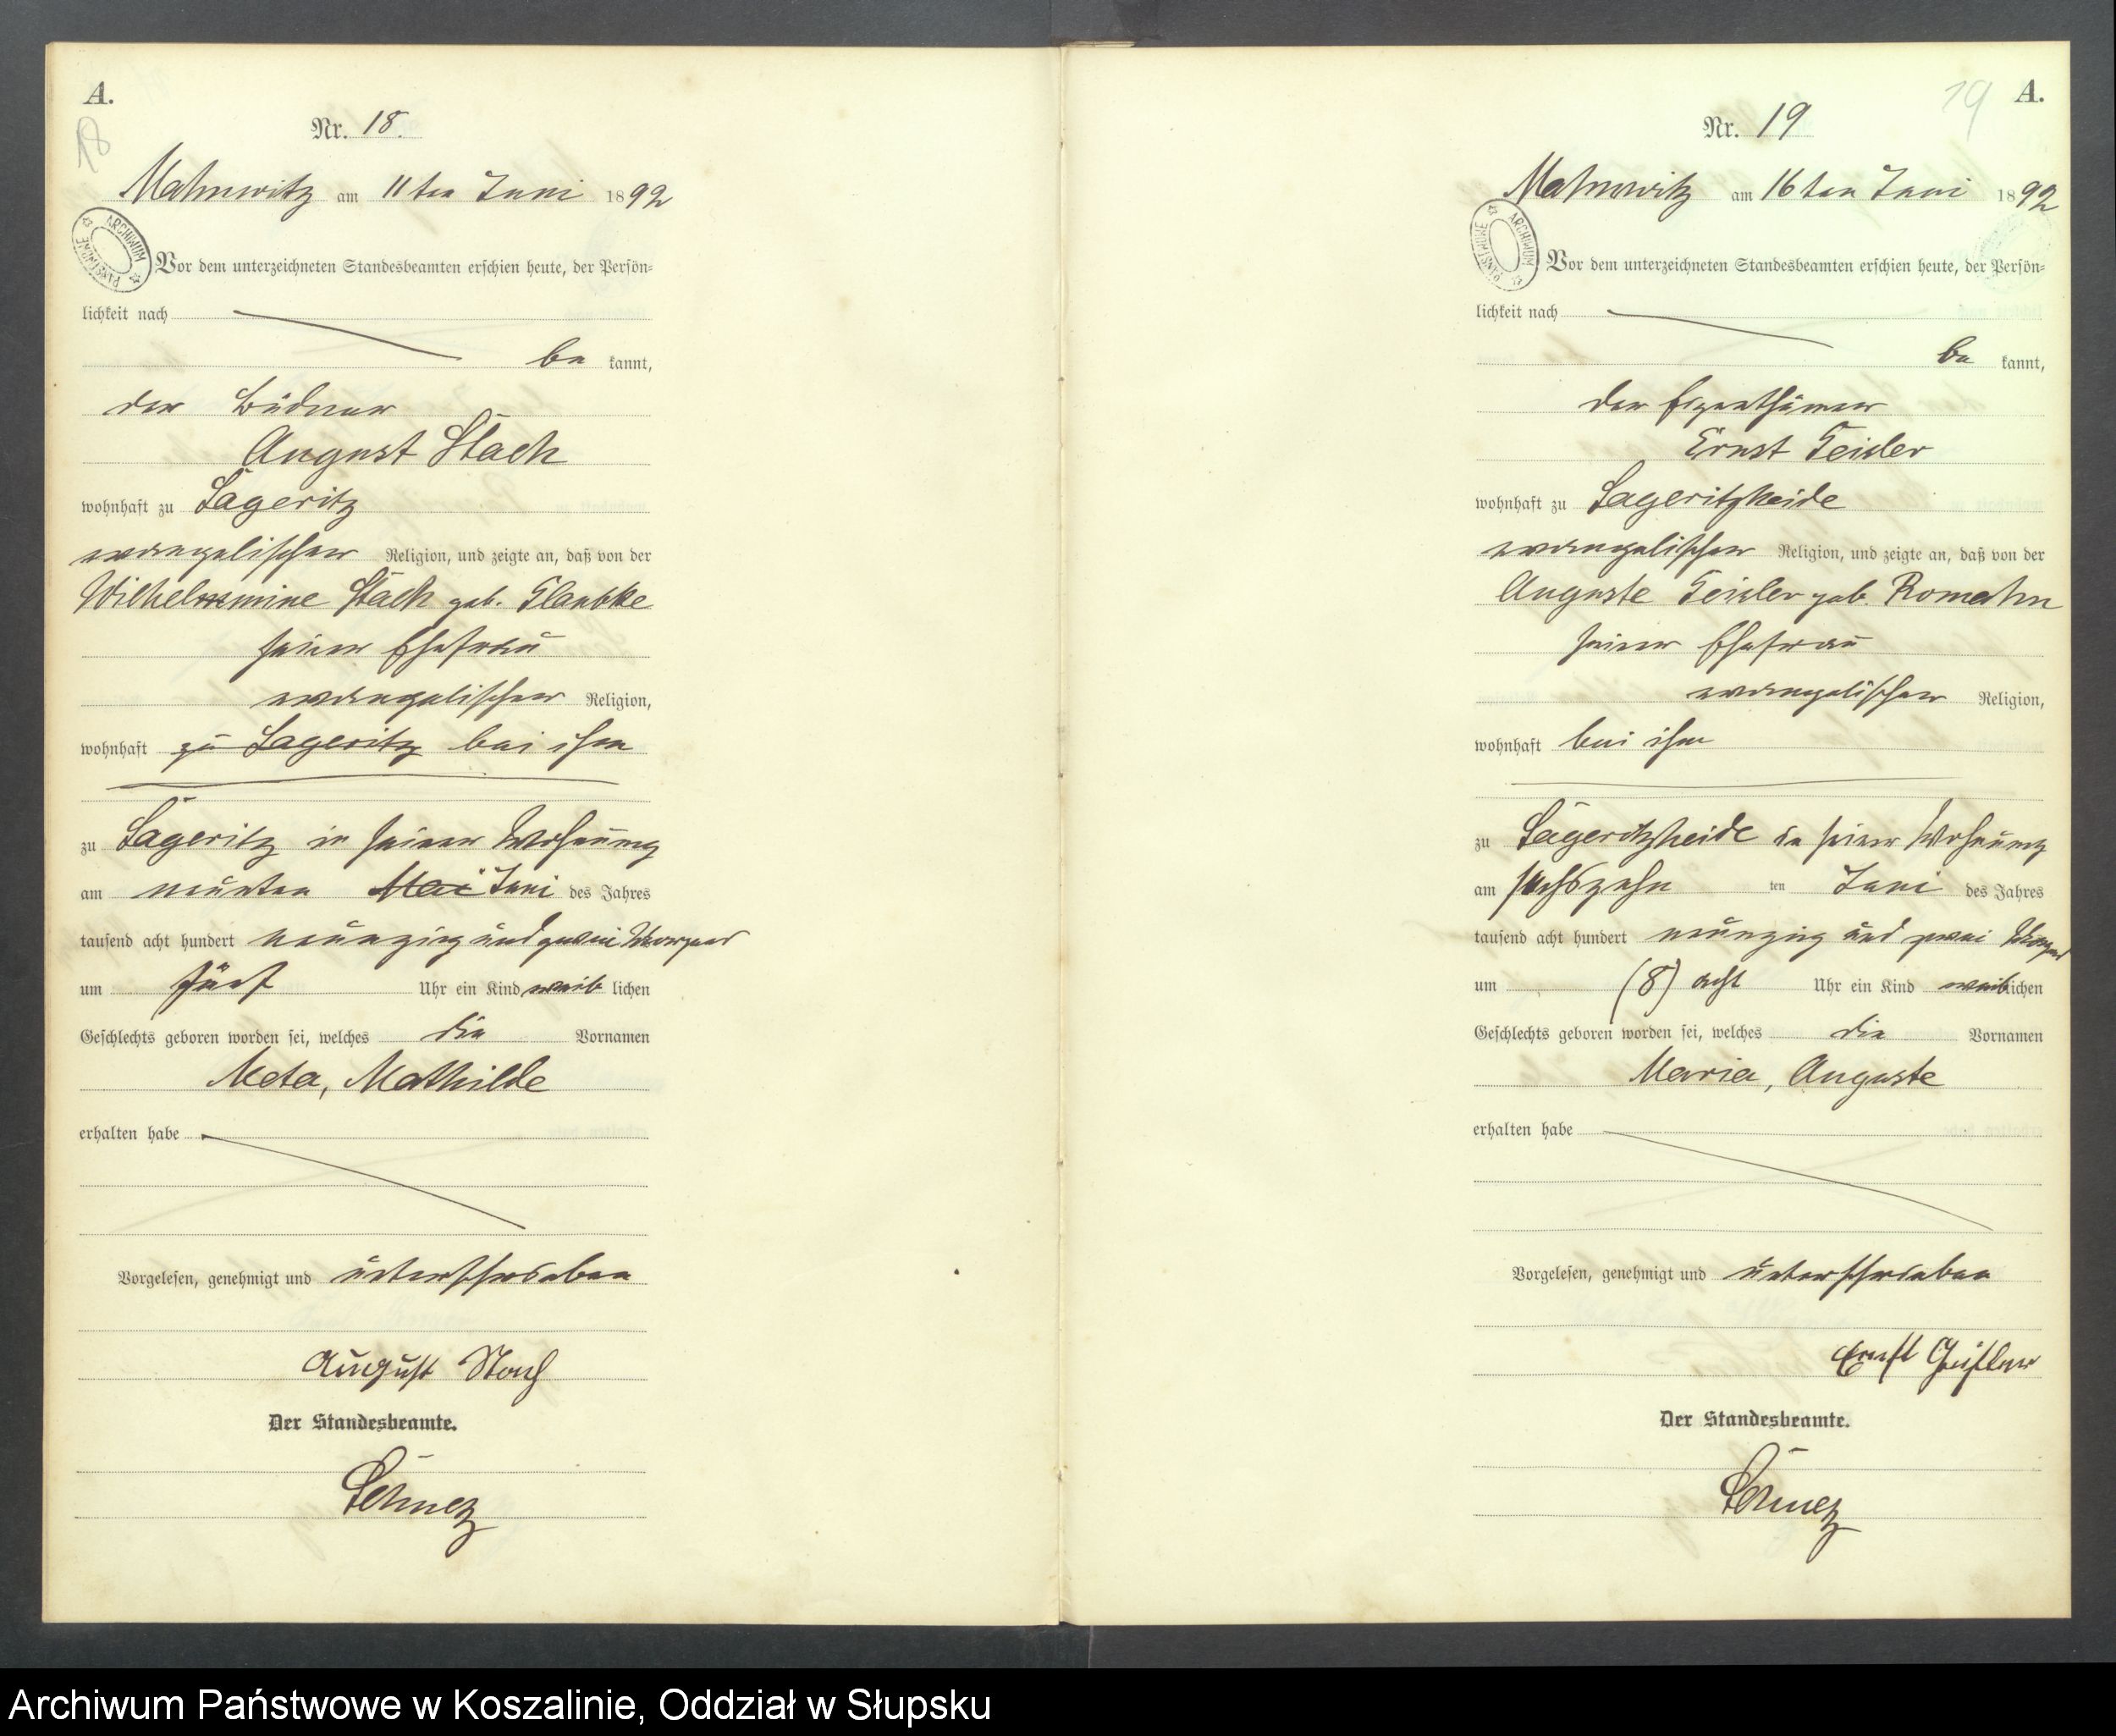 A.
18
Nr. 18.
Mahnwitz am 11ten Juni 1892
ARCHIWUM PAŃSTWOWE
Vor dem unterzeichneten Standesbeamten erschien heute, der Persön-
lichkeit nach
be kannt,
der Büdner
August Stach
wohnhaft zu Lageritz
evangelischer Religion, und zeigte an, daß von der
Wilhelmine Stach geb.
seiner Ehefrau
evangelischer Religion,
wohnhaft zu Lageritz bei ihm
zu Lageritz in seiner Wohnung
am neunten Mai Juni des Jahres
tausend acht hundert neunzig und zwei Morgens
um fünf Uhr ein Kind weib lichen
Geschlechts geboren worden sei, welches die Vornamen
Meta, Mathilde
erhalten habe
Vorgelesen, genehmigt und unterschrieben
August Stach
Der Standesbeamte.
19
A.
Nr. 19
Mahnwitz am 16ten Juni 1892
ARCHIWUM PAŃSTWOWE
Vor dem unterzeichneten Standesbeamten erschien heute, der Persön-
lichkeit nach
be kannt,
der Eigenthümer
Ernst Geisler
wohnhaft zu Lageritzheide
evangelischer Religion, und zeigte an, daß von der
Auguste Geisler geb. Romahn
seiner Ehefrau
evangelischer Religion,
wohnhaft bei ihm
zu Lageritzheide in seiner Wohnung
am sechszehn ten Juni des Jahres
tausend acht hundert neunzig und zwei Morgens
um (8) acht Uhr ein Kind weiblichen
Geschlechts geboren worden sei, welches die Vornamen
Maria, Auguste
erhalten habe
Vorgelesen, genehmigt und unterschrieben
Ernst Geisler
Der Standesbeamte.
Archiwum Państwowe w Koszalinie, Oddział w Słupsku